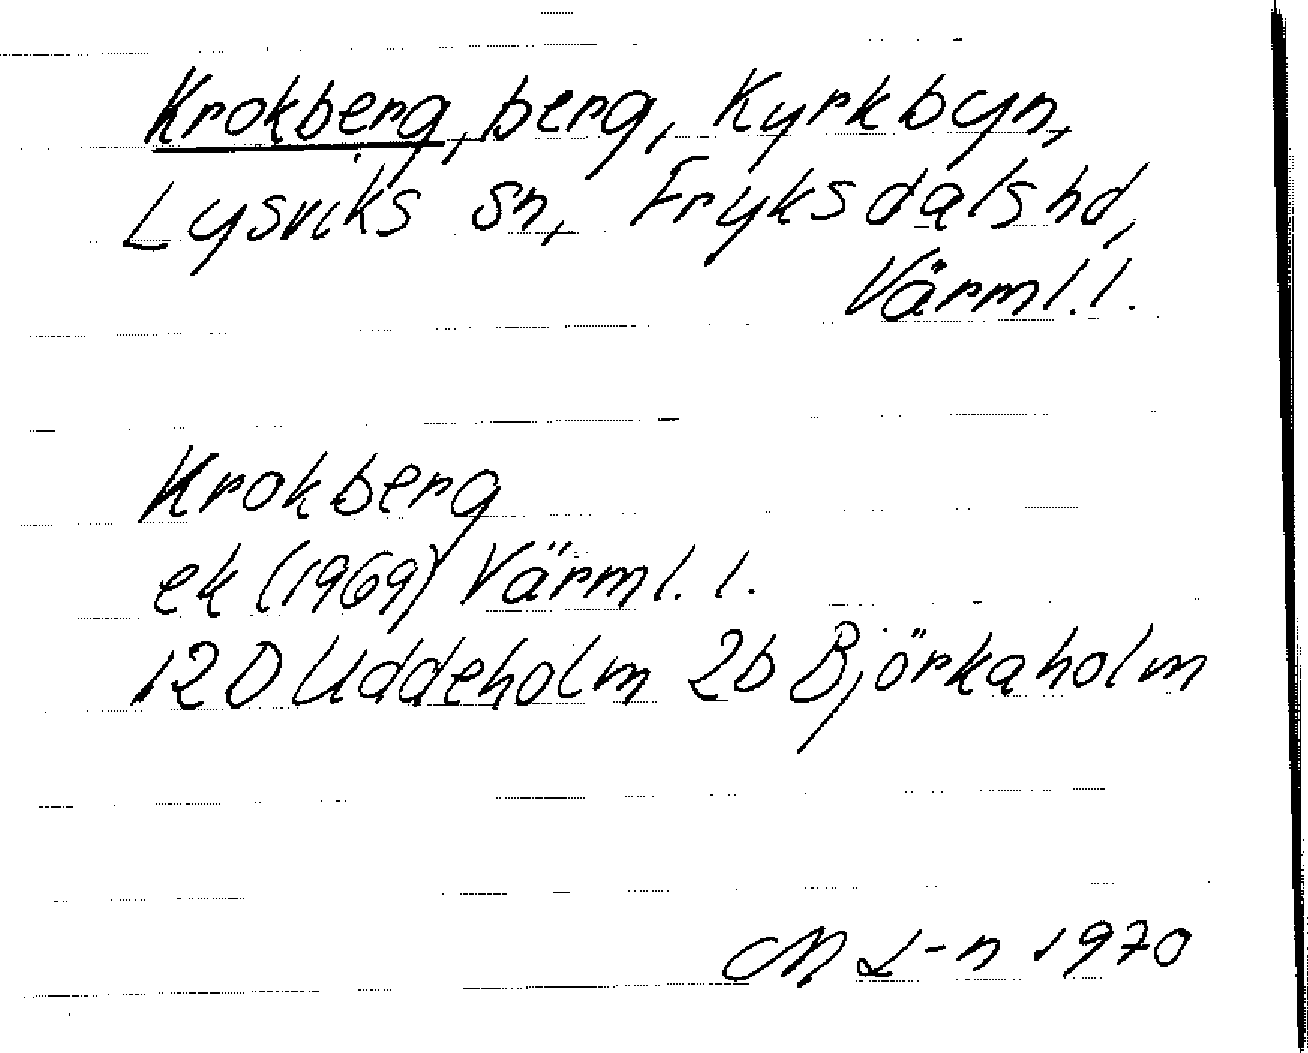 Krokberg, berg, Kyrkbyn,
Lysviks sn, Fryksdals hd,
Värml. l.
Krokberg
ek (1969) Värml. l.
12D Uddeholm 2b Björkaholm
M L-n 1970